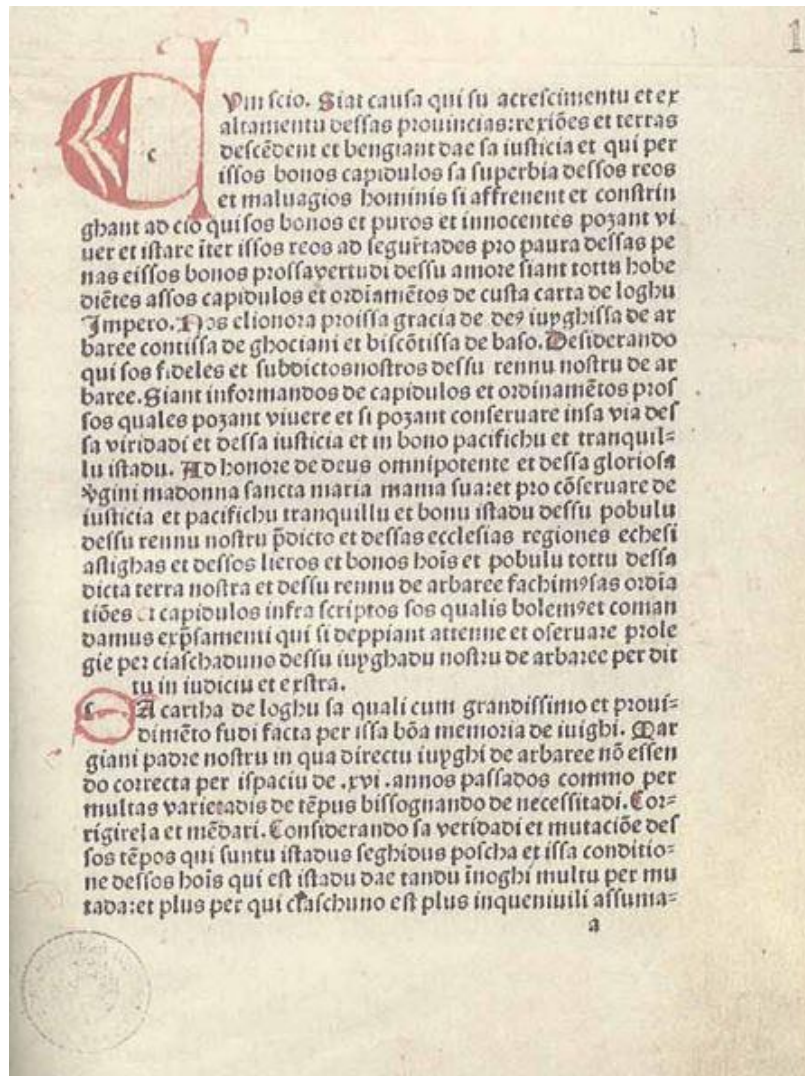 1
Vm scio. Siat causa qui su acrescimentu et ex
altamentu dessas prouincias: rexiões et terras
descẽdent et bengiant dae sa iusticia et qui per
issos bonos capidulos sa superbia dessos reos
et maluagios hominis si affrenent et constrin
ghant ad cio qui sos bonos et puros et innocentes pozant vi
uer et istare ĩter issos reos ad segur̃tades pro paura dessas pe
nas eissos bonos prossavertudi dessu amore siant tottu hobe
diẽtes assos capidulos et ordiamẽtos de custa carta de loghu
Impero. Nos elionora proissa gracia de deꝰ iuyghissa de ar
baree contissa de ghociani et biscõtissa de baso. Desiderando
qui sos fideles et subdictosnostros dessu rennu nostru de ar
baree. Siant informandos de capidulos et ordinamẽtos pros
sos quales pozant viuere et si pozant conseruare insa via des
sa viridadi et dessa iusticia et in bono pacifichu et tranquil=
lu istadu. Ad honore de deus omnipotente et dessa gloriosa
v̾gini madonna sancta maria mama sua: et pro cõseruare de
iusticia et pacifichu tranquillu et bonu istadu dessu pobulu
dessu rennu nostru p̃dicto et dessas ecclesias regiones echesi
astighas et dessos lieros et bonos hoĩs et pobulu tottu dessa
dicta terra nostra et dessu rennu de arbaree fachimꝰsas ordĩa
tiões et capidulos infra scriptos sos qualis bolemꝰet coman
damus exp̃samenti qui si deppiant attenne et oseruare prole
gie per ciaschaduno dessu iuyghadu nostru de arbaree per dit
tu in iudiciu et exstra.
SA cartha de loghu sa quali cum grandissimo et proui=
dimẽto fudi facta per issa bõa memoria de iuighi. Mar
giani padre nostru in qua directu iuyghi de arbaree nõ essen
do correcta per ispaciu de .xvi. annos passados commo per
multas varietadis de tẽpus bissognando de necessitadi. Cor=
rigirela et mẽdari. Considerando sa veridadi et mutaciõe des
sos tẽpos qui suntu istadus seghidus poscha et issa conditio=
ne dessos hoĩs qui est istadu dae tandu ĩnoghi multu per mu
tada: et plus per qui ciaschuno est plus inqueniuili assuma=
a